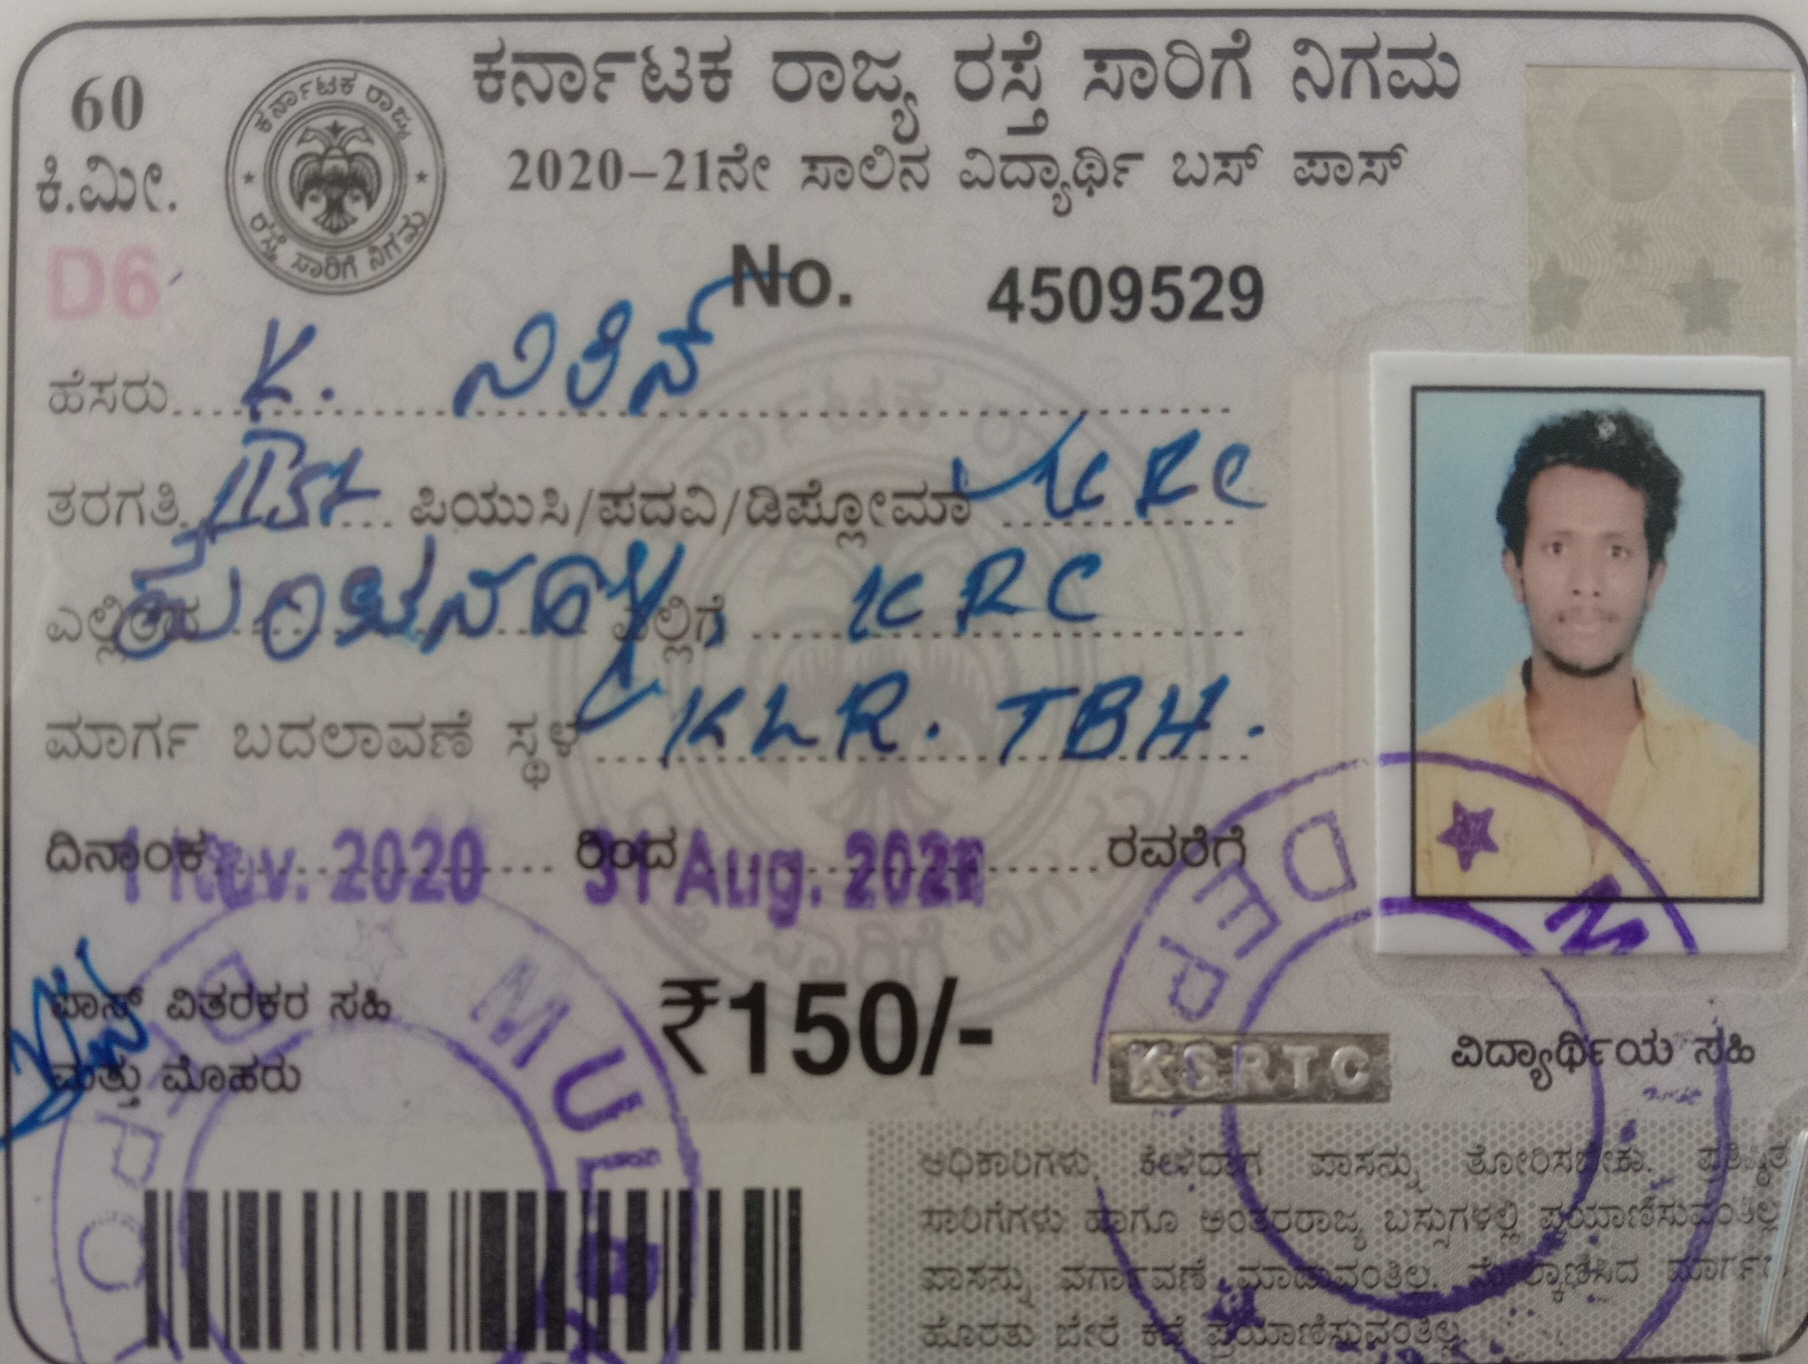 ಕರ್ನಾಟಕ ರಾಜ್ಯ ರಸ್ತೆ ಸಾರಿಗೆ ನಿಗಮ
60
ಕಿ.ಮೀ.
ಕರ್ನಾಟಕ ರಾಜ್ಯ
ರಸ್ತೆ ಸಾರಿಗೆ ನಿಗಮ
2020-21ನೇ ಸಾಲಿನ ವಿದ್ಯಾರ್ಥಿ ಬಸ್ ಪಾಸ್
D6
No. 4509529
ಹೆಸರು K. ನಿತಿನ್
ತರಗತಿ ಪಿಯುಸಿ/ಪದವಿ/ಡಿಪ್ಲೋಮಾ KRC
ಎಲ್ಲಿಂದ ಎಲ್ಲಿಗೆ KRC
ಮಾರ್ಗ ಬದಲಾವಣೆ ಸ್ಥಳ KLR. TBH.
ದಿನಾಂಕ 1 Nov. 2020 ರಿಂದ 31 Aug. 2021 ರವರೆಗೆ
ಪಾಸ್ ವಿತರಕರ ಸಹಿ
ಮತ್ತು ಮೊಹರು
₹150/-
KSRTC
ವಿದ್ಯಾರ್ಥಿಯ ಸಹಿ
ಅಧಿಕಾರಿಗಳು ಕೇಳಿದಾಗ ಪಾಸನ್ನು ತೋರಿಸಬೇಕು.
ಸಾರಿಗೆಗಳು ಹಾಗೂ ಅಂತರರಾಜ್ಯ ಬಸ್ಸುಗಳಲ್ಲಿ ಪ್ರಯಾಣಿಸುವಂತಿಲ್ಲ
ಪಾಸನ್ನು ವರ್ಗಾವಣೆ ಮಾಡುವಂತಿಲ್ಲ. ಮೇಲ್ಕಾಣಿಸಿದ ಮಾರ್ಗ
ಹೊರತು ಬೇರೆ ಕಡೆ ಪ್ರಯಾಣಿಸುವಂತಿಲ್ಲ.